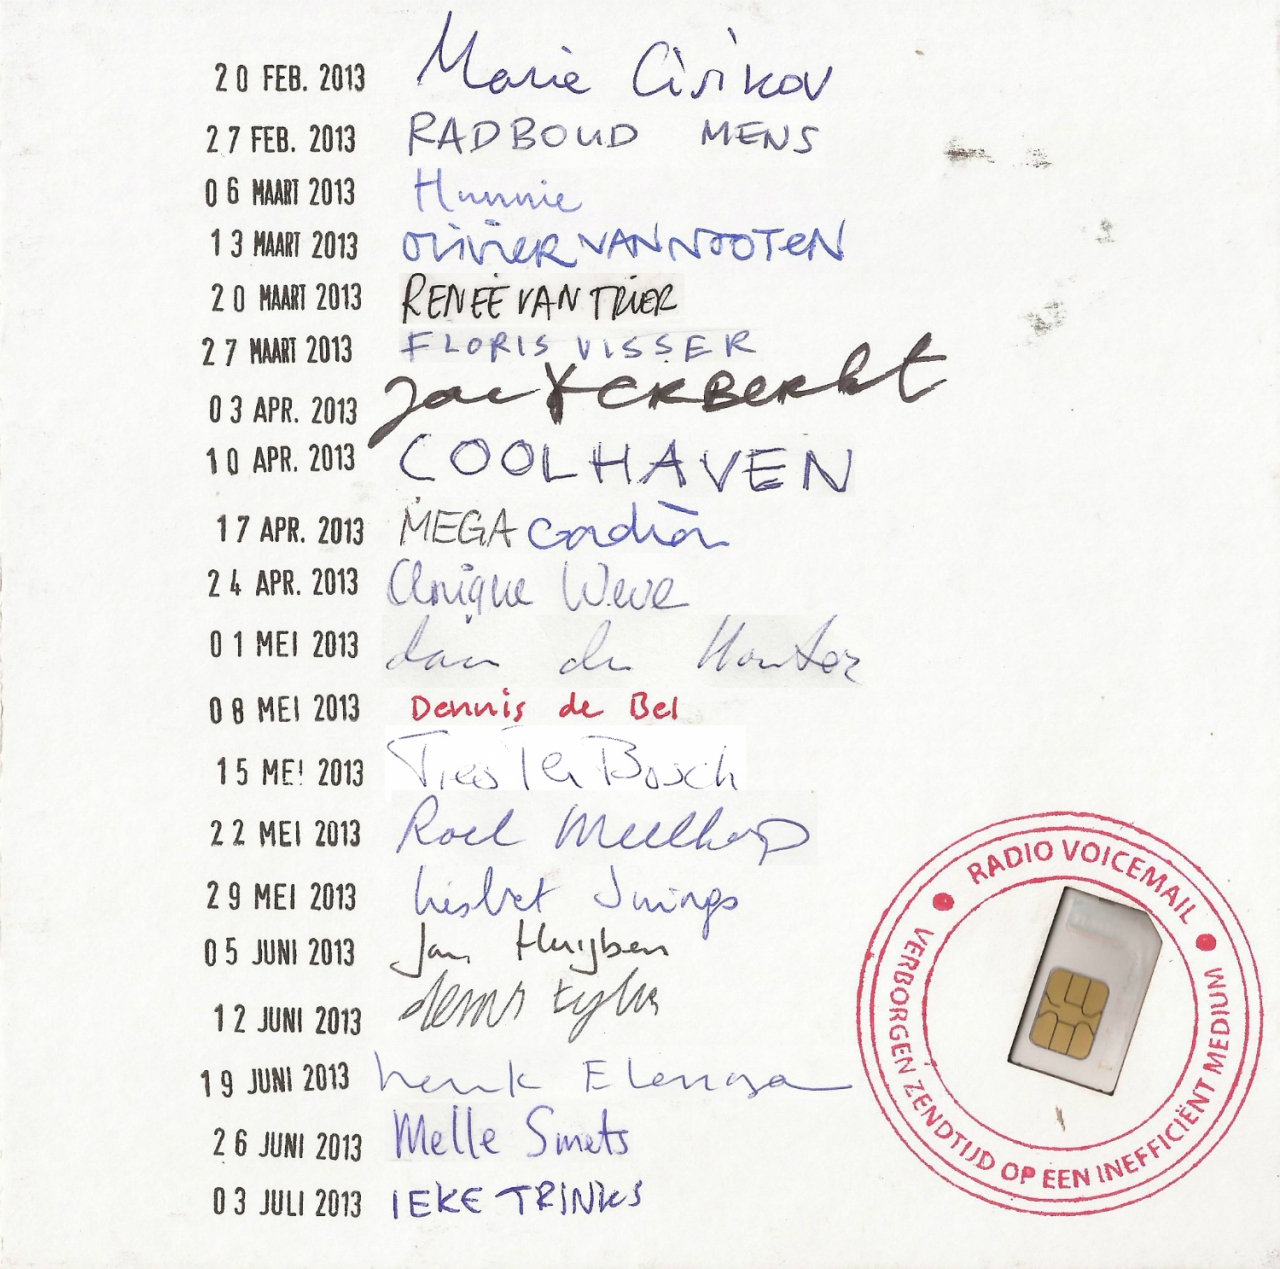 20 FEB. 2013 Marie Civikov
27 FEB. 2013 RADBOUD MENS
06 MAART 2013 Hunnie
13 MAART 2013 OLIVIER VAN NOOTEN
20 MAART 2013 RENEE VAN TRIER
27 MAART 2013 FLORIS VISSER
03 APR. 2013 Jack Kerbergt
10 APR. 2013 COOLHAVEN
17 APR. 2013 MEGA
24 APR. 2013 Anique Weve
01 MEI 2013 dan den Houter
08 MEI 2013 Dennis de Bel
15 MEI 2013 Ties Ten Bosch
22 MEI 2013 Roel Meelkop
29 MEI 2013
05 JUNI 2013 Jan Huijben
12 JUNI 2013
19 JUNI 2013 henk Elenga
26 JUNI 2013 Melle Smets
03 JULI 2013 IEKE TRINKS
RADIO VOICEMAIL
VERBORGEN ZENDTIJD OP EEN INEFFICIËNT MEDIUM